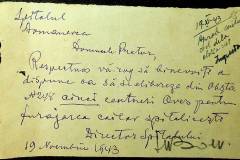 Spitalul
Domanevca
Domnule Pretor,
Respectuos vă rog să binevoiți a
dispune ca să se elibereze din Obștea
A248 cinci centneri Ovăs pentru
furagarea cailor spitalicești
Directorul Spitalului
19 Noembrie 1943
19.XI.43